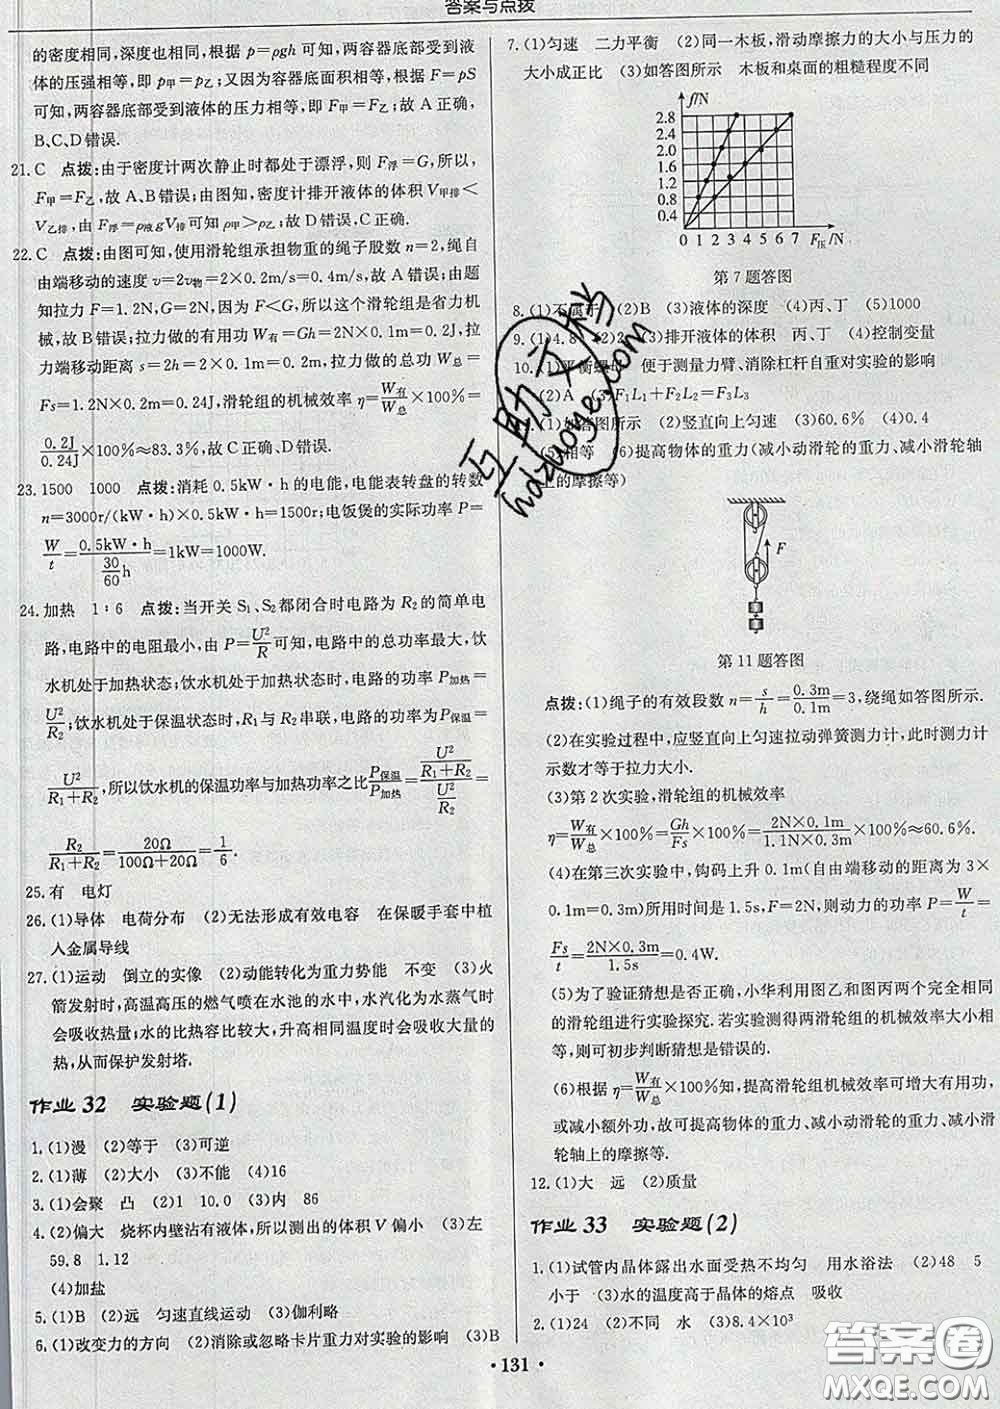 答案与点拨
的密度相同,深度也相同,根据 p=ρgh 可知,两容器底部受到液
体的压强相等,即 p甲=p乙;又因为容器底面积相等,根据 F=pS
可知,两容器底部受到液体的压力相等,即 F甲=F乙;故 A 正确,
B、C、D 错误.
21. C 点拨:由于密度计两次静止时都处于漂浮,则 F浮=G,所以,
F甲=F乙,故 A、B 错误;由图知,密度计排开液体的体积 V甲排<
V乙排,由 F浮=ρ液gV排可知 ρ甲>ρ乙;故 D 错误,C 正确.
22. C 点拨:由图可知,使用滑轮组承担物重的绳子股数 n=2,绳自
由端移动的速度 v=2v物=2×0.2m/s=0.4m/s,故 A 错误;由题
知拉力 F=1.2N,G=2N,因为 F<G,所以这个滑轮组是省力机
械,故 B 错误;拉力做的有用功 W有=Gh=2N×0.1m=0.2J,拉
力端移动距离 s=2h=2×0.1m=0.2m,拉力做的总功 W总=
Fs=1.2N×0.2m=0.24J,滑轮组的机械效率 η=W有/W总×100%=
0.2J/0.24J×100%≈83.3%,故 C 正确、D 错误.
23. 1500 1000 点拨:消耗 0.5kW·h 的电能,电能表转盘的转数
n=3000r/(kW·h)×0.5kW·h=1500r;电饭煲的实际功率 P=
W/t=0.5kW·h/(30/60 h)=1kW=1000W.
24. 加热 1∶6 点拨:当开关 S₁、S₂ 都闭合时电路为 R₂ 的简单电
路,电路中的电阻最小,由 P=U²/R 可知,电路中的总功率最大,饮
水机处于加热状态;饮水机处于加热状态时,电路的功率 P加热=
U²/R₂;饮水机处于保温状态时,R₁ 与 R₂ 串联,电路的功率 P保温=
U²/(R₁+R₂),所以饮水机的保温功率与加热功率之比 P保温/P加热=(U²/(R₁+R₂))/(U²/R₂)=
R₂/(R₁+R₂)=20Ω/(100Ω+20Ω)=1/6.
25. 有 电灯
26. (1)导体 电荷分布 (2)无法形成有效电容 在保暖手套中植
入金属导线
27. (1)运动 倒立的实像 (2)动能转化为重力势能 不变 (3)火
箭发射时,高温高压的燃气喷在水池的水中,水汽化为水蒸气时
会吸收热量;水的比热容比较大,升高相同温度时会吸收大量的
热,从而保护发射塔.
作业 32 实验题(1)
1. (1)漫 (2)等于 (3)可逆
2. (1)薄 (2)大小 (3)不能 (4)16
3. (1)会聚 凸 (2)1 10.0 (3)内 86
4. (2)偏大 烧杯内壁沾有液体,所以测出的体积 V 偏小 (3)左
59.8 1.12
(4)加盐
5. (1)B (2)远 匀速直线运动 (3)伽利略
6. (1)改变力的方向 (2)消除或忽略卡片重力对实验的影响 (3)B
7. (1)匀速 二力平衡 (2)同一木板,滑动摩擦力的大小与压力的
大小成正比 (3)如答图所示 木板和桌面的粗糙程度不同
f/N
2.8
2.4
2.0
1.6
1.2
0.8
0.4
0 1 2 3 4 5 6 7 F压/N
第 7 题答图
8. (1)不属于 (2)B (3)液体的深度 (4)丙、丁 (5)1000
9. (1)4.8 (2)2 (3)排开液体的体积 丙、丁 (4)控制变量
10. (1)平衡螺母 便于测量力臂、消除杠杆自重对实验的影响
(2)A (3)F₁L₁+F₂L₂=F₃L₃
(1)如答图所示 (2)竖直向上匀速 (3)60.6% (4)0.4
(5)相等 (6)提高物体的重力(减小动滑轮的重力、减小滑轮轴
上的摩擦等)
F
第 11 题答图
点拨:(1)绳子的有效段数 n=s/h=0.3m/0.1m=3,绕绳如答图所示.
(2)在实验过程中,应竖直向上匀速拉动弹簧测力计,此时测力计
示数才等于拉力大小.
(3)第 2 次实验,滑轮组的机械效率
η=W有/W总×100%=Gh/Fs×100%=2N×0.1m/1.1N×0.3m×100%≈60.6%.
(4)在第三次实验中,钩码上升 0.1m(自由端移动的距离为 3×
0.1m=0.3m)所用时间是 1.5s,F=2N,则动力的功率 P=W/t=
Fs/t=2N×0.3m/1.5s=0.4W.
(5)为了验证猜想是否正确,小华利用图乙和图丙两个完全相同
的滑轮组进行实验探究.若实验测得两滑轮组的机械效率大小相
等,则可初步判断猜想是错误的.
(6)根据 η=W有/W总×100%知,提高滑轮组机械效率可增大有用功,
或减小额外功,故可提高物体的重力、减小动滑轮的重力、减小滑
轮轴上的摩擦等.
12. (1)大 远 (2)质量
作业 33 实验题(2)
1. (1)试管内晶体露出水面受热不均匀 用水浴法 (2)48 5
小于 (3)水的温度高于晶体的熔点 吸收
2. (1)24 (2)不同 水 (3)8.4×10³
·131·
互助文档
hdzuoye.com
答案圈
MXQE.COM